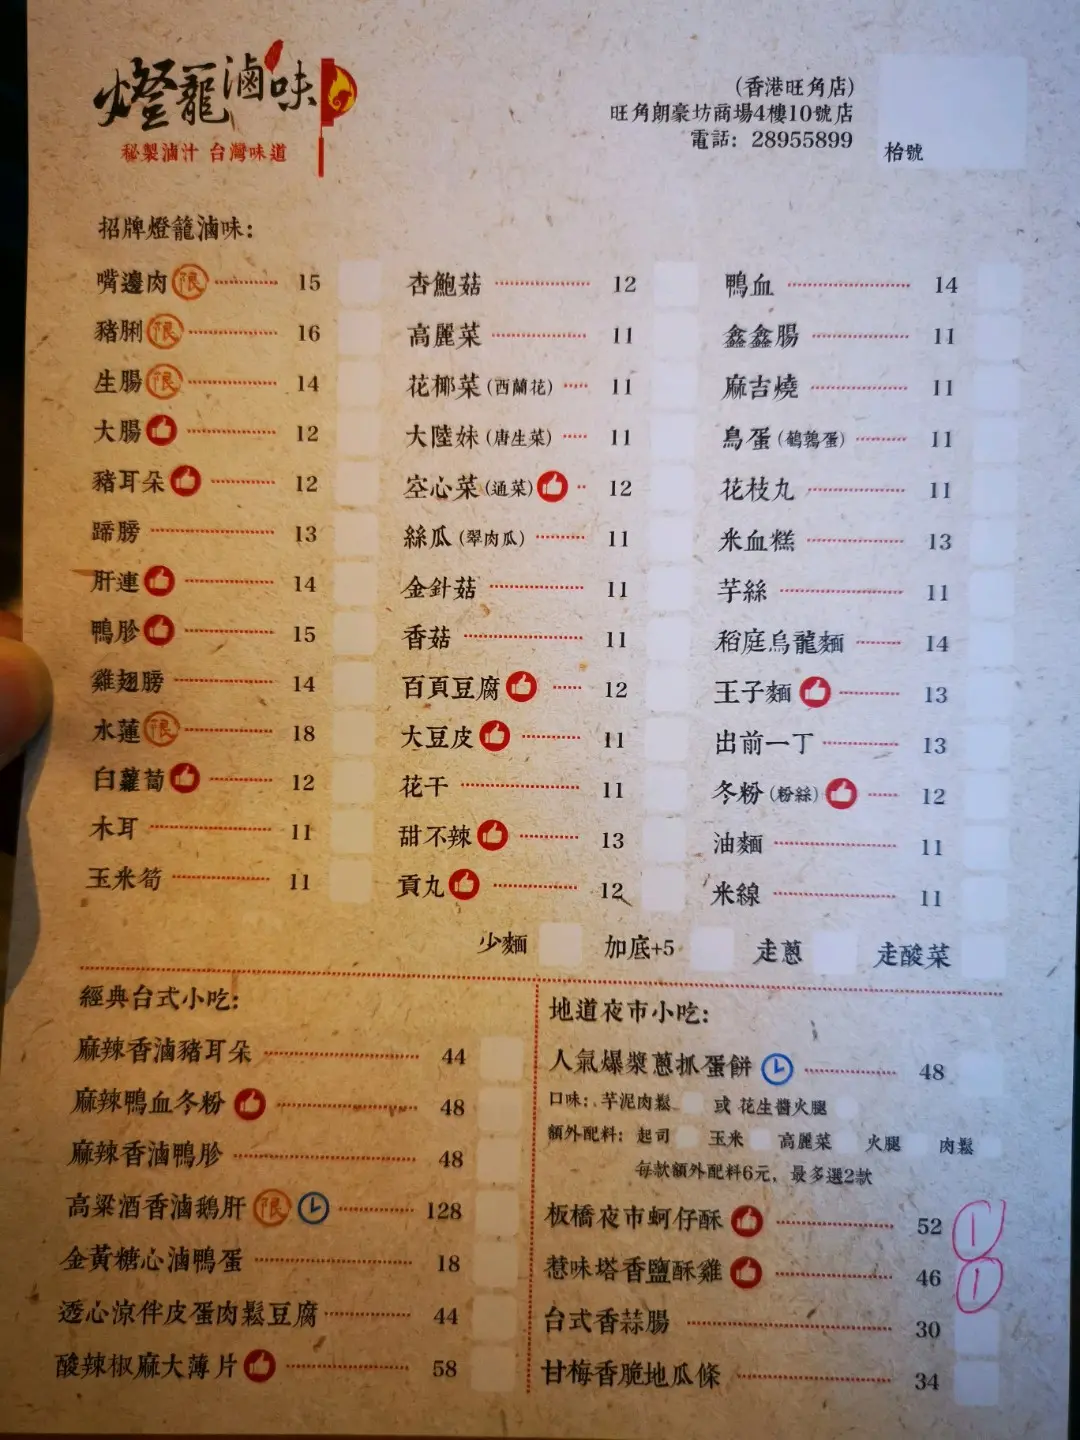 燈籠滷味
秘製滷汁 台灣味道
(香港旺角店)
旺角朗豪坊商場4樓10號店
電話: 28955899
枱號
招牌燈籠滷味:
嘴邊肉 限 15
豬脷 限 16
生腸 限 14
大腸 12
豬耳朵 12
蹄膀 13
肝連 14
鴨胗 15
雞翅膀 14
水蓮 限 18
白蘿蔔 12
木耳 11
玉米筍 11
杏鮑菇 12
高麗菜 11
花椰菜 (西蘭花) 11
大陸妹 (唐生菜) 11
空心菜 (通菜) 12
絲瓜 (翠肉瓜) 11
金針菇 11
香菇 11
百頁豆腐 12
大豆皮 11
花干 11
甜不辣 13
貢丸 12
鴨血 14
鑫鑫腸 11
麻吉燒 11
鳥蛋 (鵪鶉蛋) 11
花枝丸 11
米血糕 13
芋絲 11
稻庭烏龍麵 14
王子麵 13
出前一丁 13
冬粉 (粉絲) 12
油麵 11
米線 11
少麵 加底+5 走蔥 走酸菜
經典台式小吃:
麻辣香滷豬耳朵 44
麻辣鴨血冬粉 48
麻辣香滷鴨胗 48
高粱酒香滷鵝肝 限 128
金黃糖心滷鴨蛋 18
透心涼伴皮蛋肉鬆豆腐 44
酸辣椒麻大薄片 58
地道夜市小吃:
人氣爆漿蔥抓蛋餅 48
口味: 芋泥肉鬆 或 花生醬火腿
額外配料: 起司 玉米 高麗菜 火腿 肉鬆
每款額外配料6元, 最多選2款
板橋夜市蚵仔酥 52 1
惹味塔香鹽酥雞 46 1
台式香蒜腸 30
甘梅香脆地瓜條 34